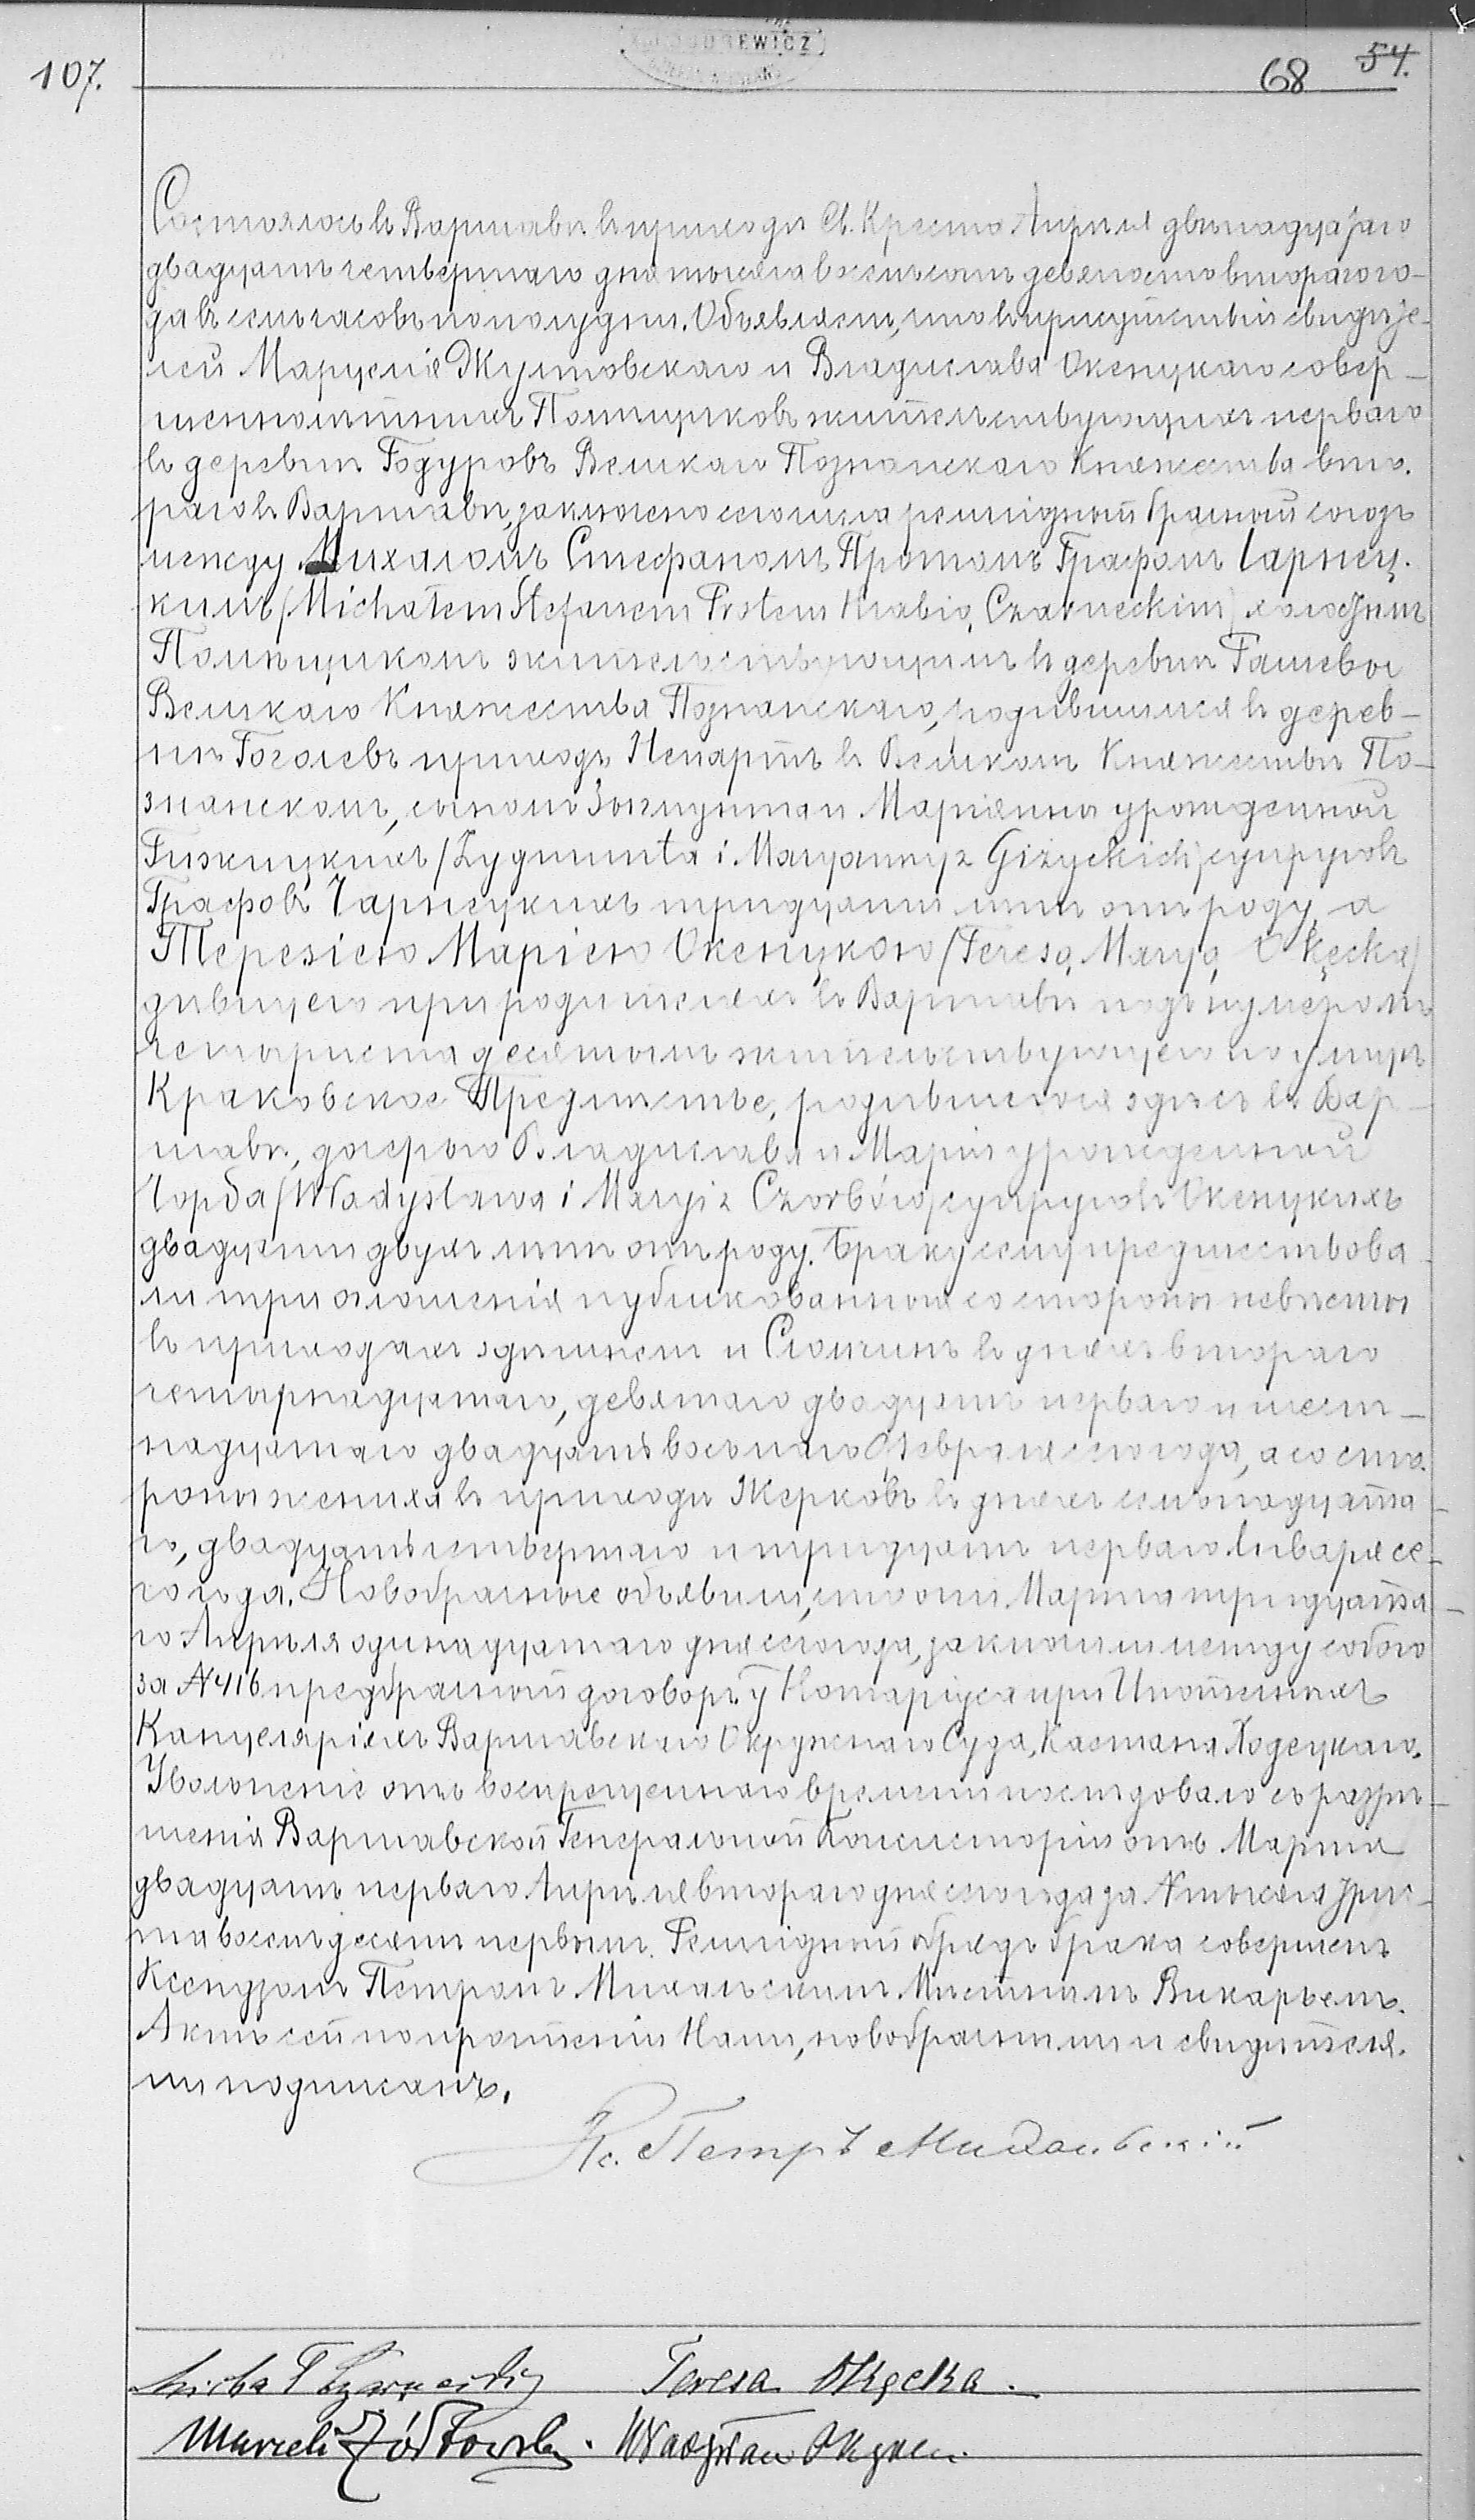 107.
68 54.
Состоялось въ Варшавѣ въ приходѣ Св. Креста Апрѣля двѣнадцатаго
двадцать четвертаго дня тысяча восемьсотъ девяносто втораго го-
да въ семь часовъ по полудни. Объявляемъ, что въ присутствіи свидѣте-
лей Марцелія Жултовскаго и Владислава Окенцкаго совер-
шеннолѣтнихъ Помѣщиковъ жительствующихъ перваго
въ деревнѣ Годуровъ Великаго Познанскаго Княжества вто-
раго въ Варшавѣ, заключено сего числа религіозный брачный союзъ
между Михаломъ Стефаномъ Протомъ Графомъ Чарнец-
кимъ /Michałem Stefanem Protem Hrabią Czarneckim/ холостымъ
Помѣщикомъ жительствующимъ въ деревнѣ
Великаго Княжества Познанскаго, родившимся въ дерев-
нѣ Гоголевъ приходъ Непартъ въ Великомъ Княжествѣ По-
знанскомъ, сыномъ Зигмунта и Маріанны урожденной
Гижицкихъ /Zygmunta i Maryanny z Giżyckich/ супруговъ
Графовъ Чарнецкихъ тридцати лѣтъ отъ роду, а
Терезіею Маріею Окенцкою /Teresą Maryą Okęcką/
дѣвицею при родителяхъ въ Варшавѣ подъ нумеромъ
четыреста десятымъ жительствующею по улицѣ
Краковское Предмѣстье, родившеюся здѣсь въ Вар-
шавѣ, дочерью Владислава и Маріи урожденной
Чорба /Władysława i Maryi z Czorbów/ супруговъ Окенцкихъ
двадцати двухъ лѣтъ отъ роду. Браку сему предшествова-
ли три оглашенія публикованныя со стороны невѣсты
въ приходахъ здѣшнемъ и въ дняхъ втораго
четырнадцатаго, девятаго двадцать перваго и шест-
надцатаго двадцать восьмаго Февраля сего года, а со сто-
роны жениха въ приходѣ Жерковъ въ дняхъ семнадцата-
го, двадцать четвертаго и тридцать перваго Января се-
го года. Новобрачные объявили, что они Марта тридцата-
го Апрѣля одинадцатаго дня сего года, заключили между собою
за N 416 предбрачный договоръ у Нотаріуса при Ипотечныхъ
Канцеляріяхъ Варшавскаго Окружнаго Суда, Каетана Ходецкаго.
Увольненіе отъ воспрещеннаго времени послѣдовало съ разрѣ-
шенія Варшавской Генеральной Консисторіи отъ Марта
двадцать перваго Апрѣля втораго дня сего года за N тысяча трис-
та восемьдесятъ первымъ. Религіозный обрядъ брака совершенъ
Ксендзомъ Петромъ Михальскимъ Мѣстнымъ Викарьемъ.
Актъ сей по прочтеніи Нами, новобрачными и свидѣтеля-
ми подписанъ.
Кс. Петръ Михальскій
Michał Czarnecki Teresa Okęcka.
Marceli Żółtowski. Władysław Okęcki.